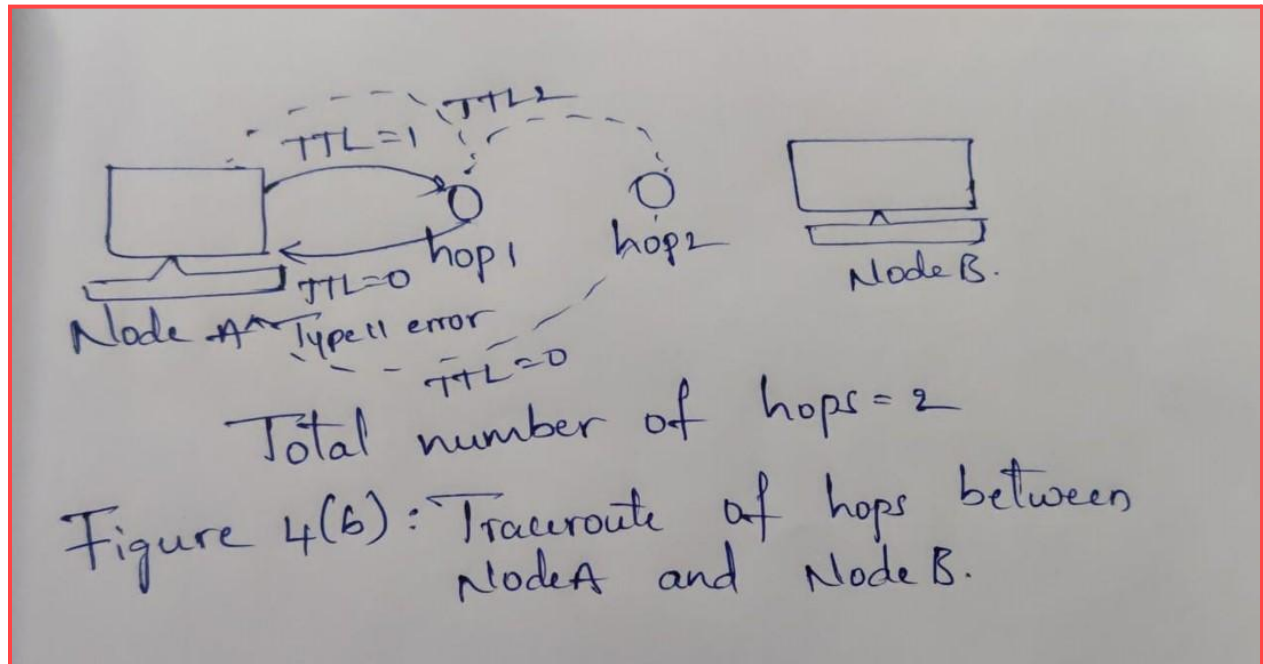 TTL2
TTL=1
hop1
hop2
TTL=0
Node A
Type 11 error
TTL=0
Node B.
Total number of hops=2
Figure 4(b): Traceroute of hops between
Node A and Node B.